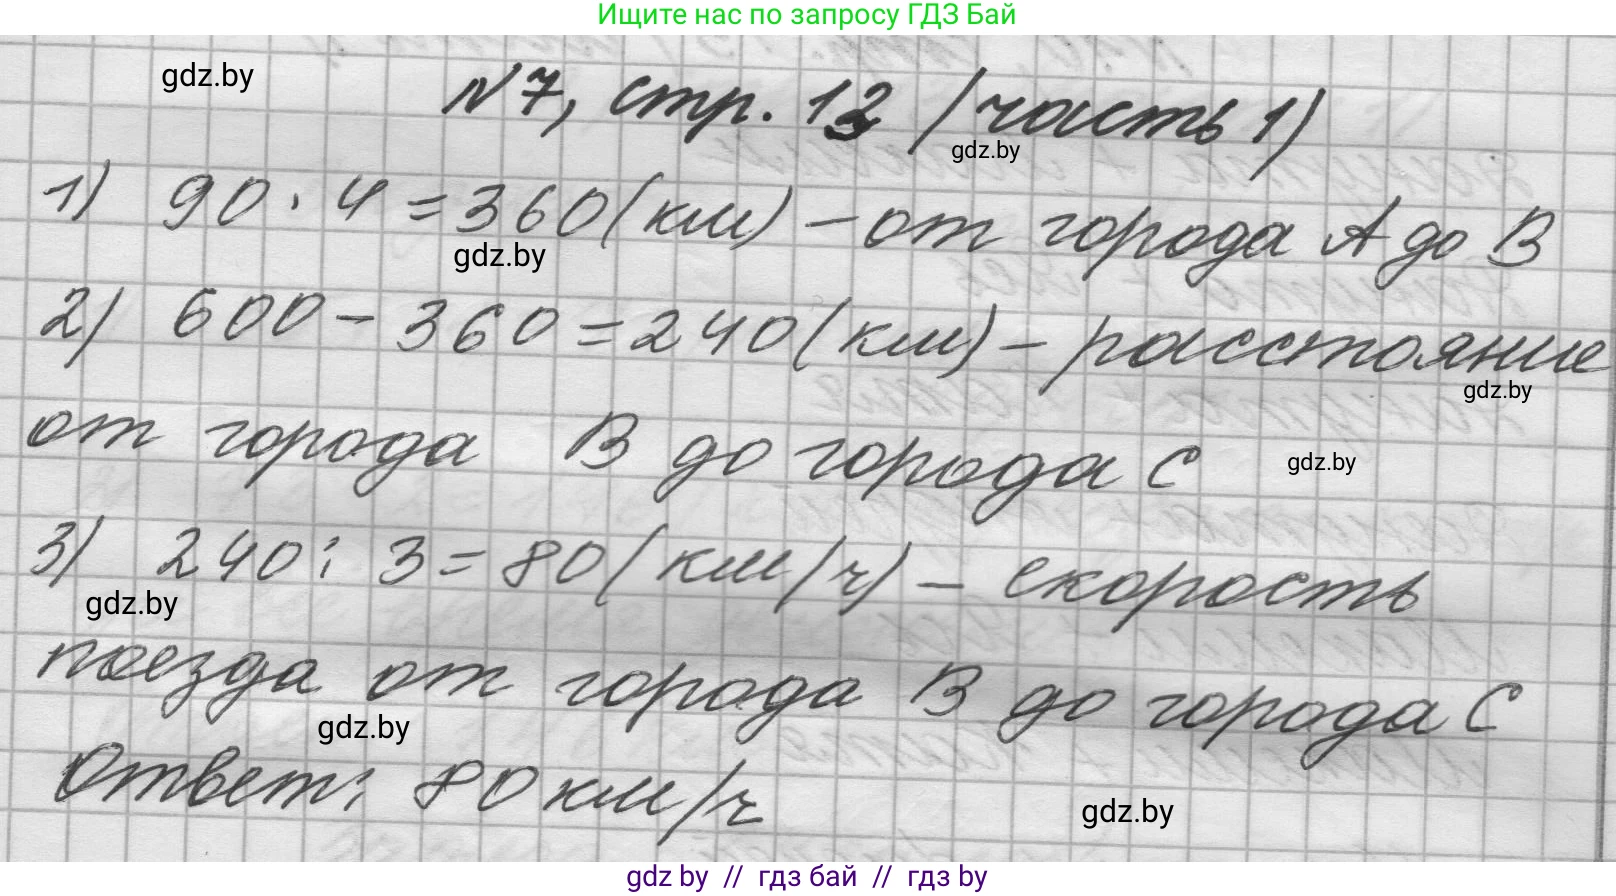 Ищите нас по запросу ГДЗ Бай
gdz.by
№7, стр. 13 (часть 1)
gdz.by
1) 90 · 4 = 360 (км) – от города А до В
gdz.by
2) 600 – 360 = 240 (км) – расстояние
gdz.by
от города В до города С
gdz.by
3) 240 : 3 = 80 (км/ч) – скорость
gdz.by
поезда от города В до города С
gdz.by
Ответ: 80 км/ч
gdz.by
gdz by // гдз бай // гдз by